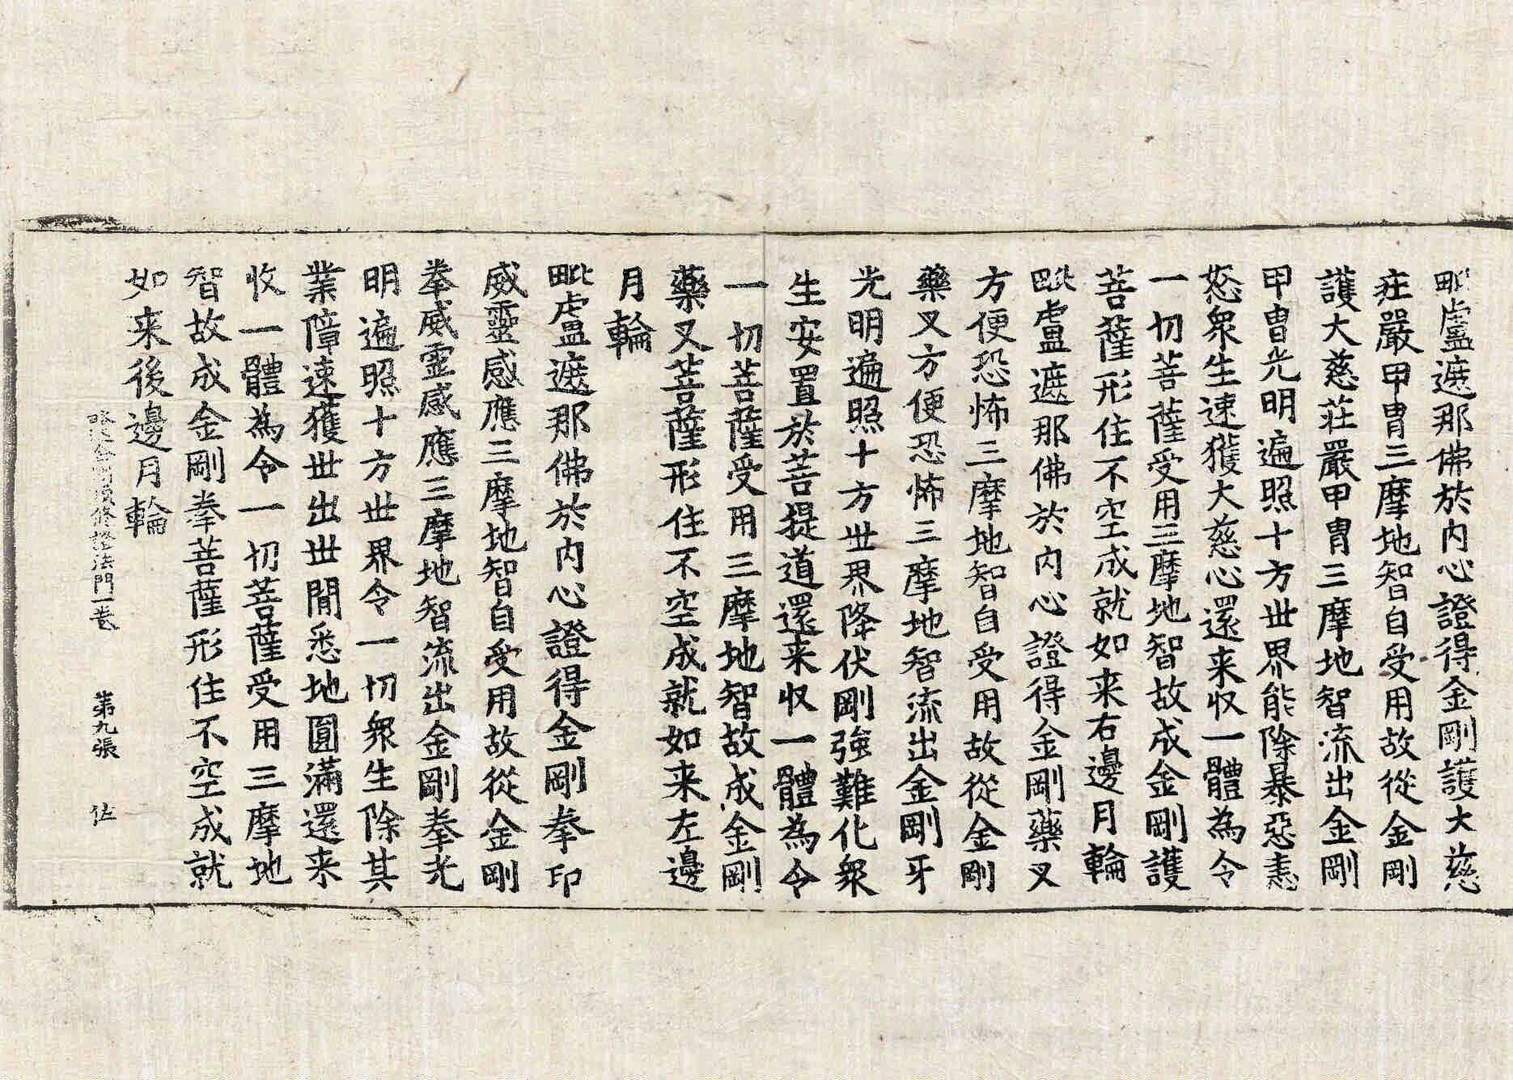 毗盧遮那佛於內心證得金剛護大慈
莊嚴甲冑三摩地智自受用故從金剛
護大慈莊嚴甲冑三摩地智流出金剛
甲冑光明遍照十方世界能除暴惡恚
怒衆生速獲大慈心還来収一體為令
一切菩薩受用三摩地智故成金剛護
菩薩形住不空成就如来右邊月輪
毗盧遮那佛於內心證得金剛藥叉
方便恐怖三摩地智自受用故從金剛
藥叉方便恐怖三摩地智流出金剛牙
光明遍照十方世界降伏剛強難化衆
生安置於菩提道還来収一體為令
一切菩薩受用三摩地智故成金剛
藥叉菩薩形住不空成就如来左邊
月輪
毗盧遮那佛於內心證得金剛拳印
威靈感應三摩地智自受用故從金剛
拳威靈感應三摩地智流出金剛拳光
明遍照十方世界令一切衆生除其
業障速獲世出世間悉地圓滿還来
收一體為令一切菩薩受用三摩地
智故成金剛拳菩薩形住不空成就
如来後邊月輪
略述金剛頂修證法門一卷 第九張 佐